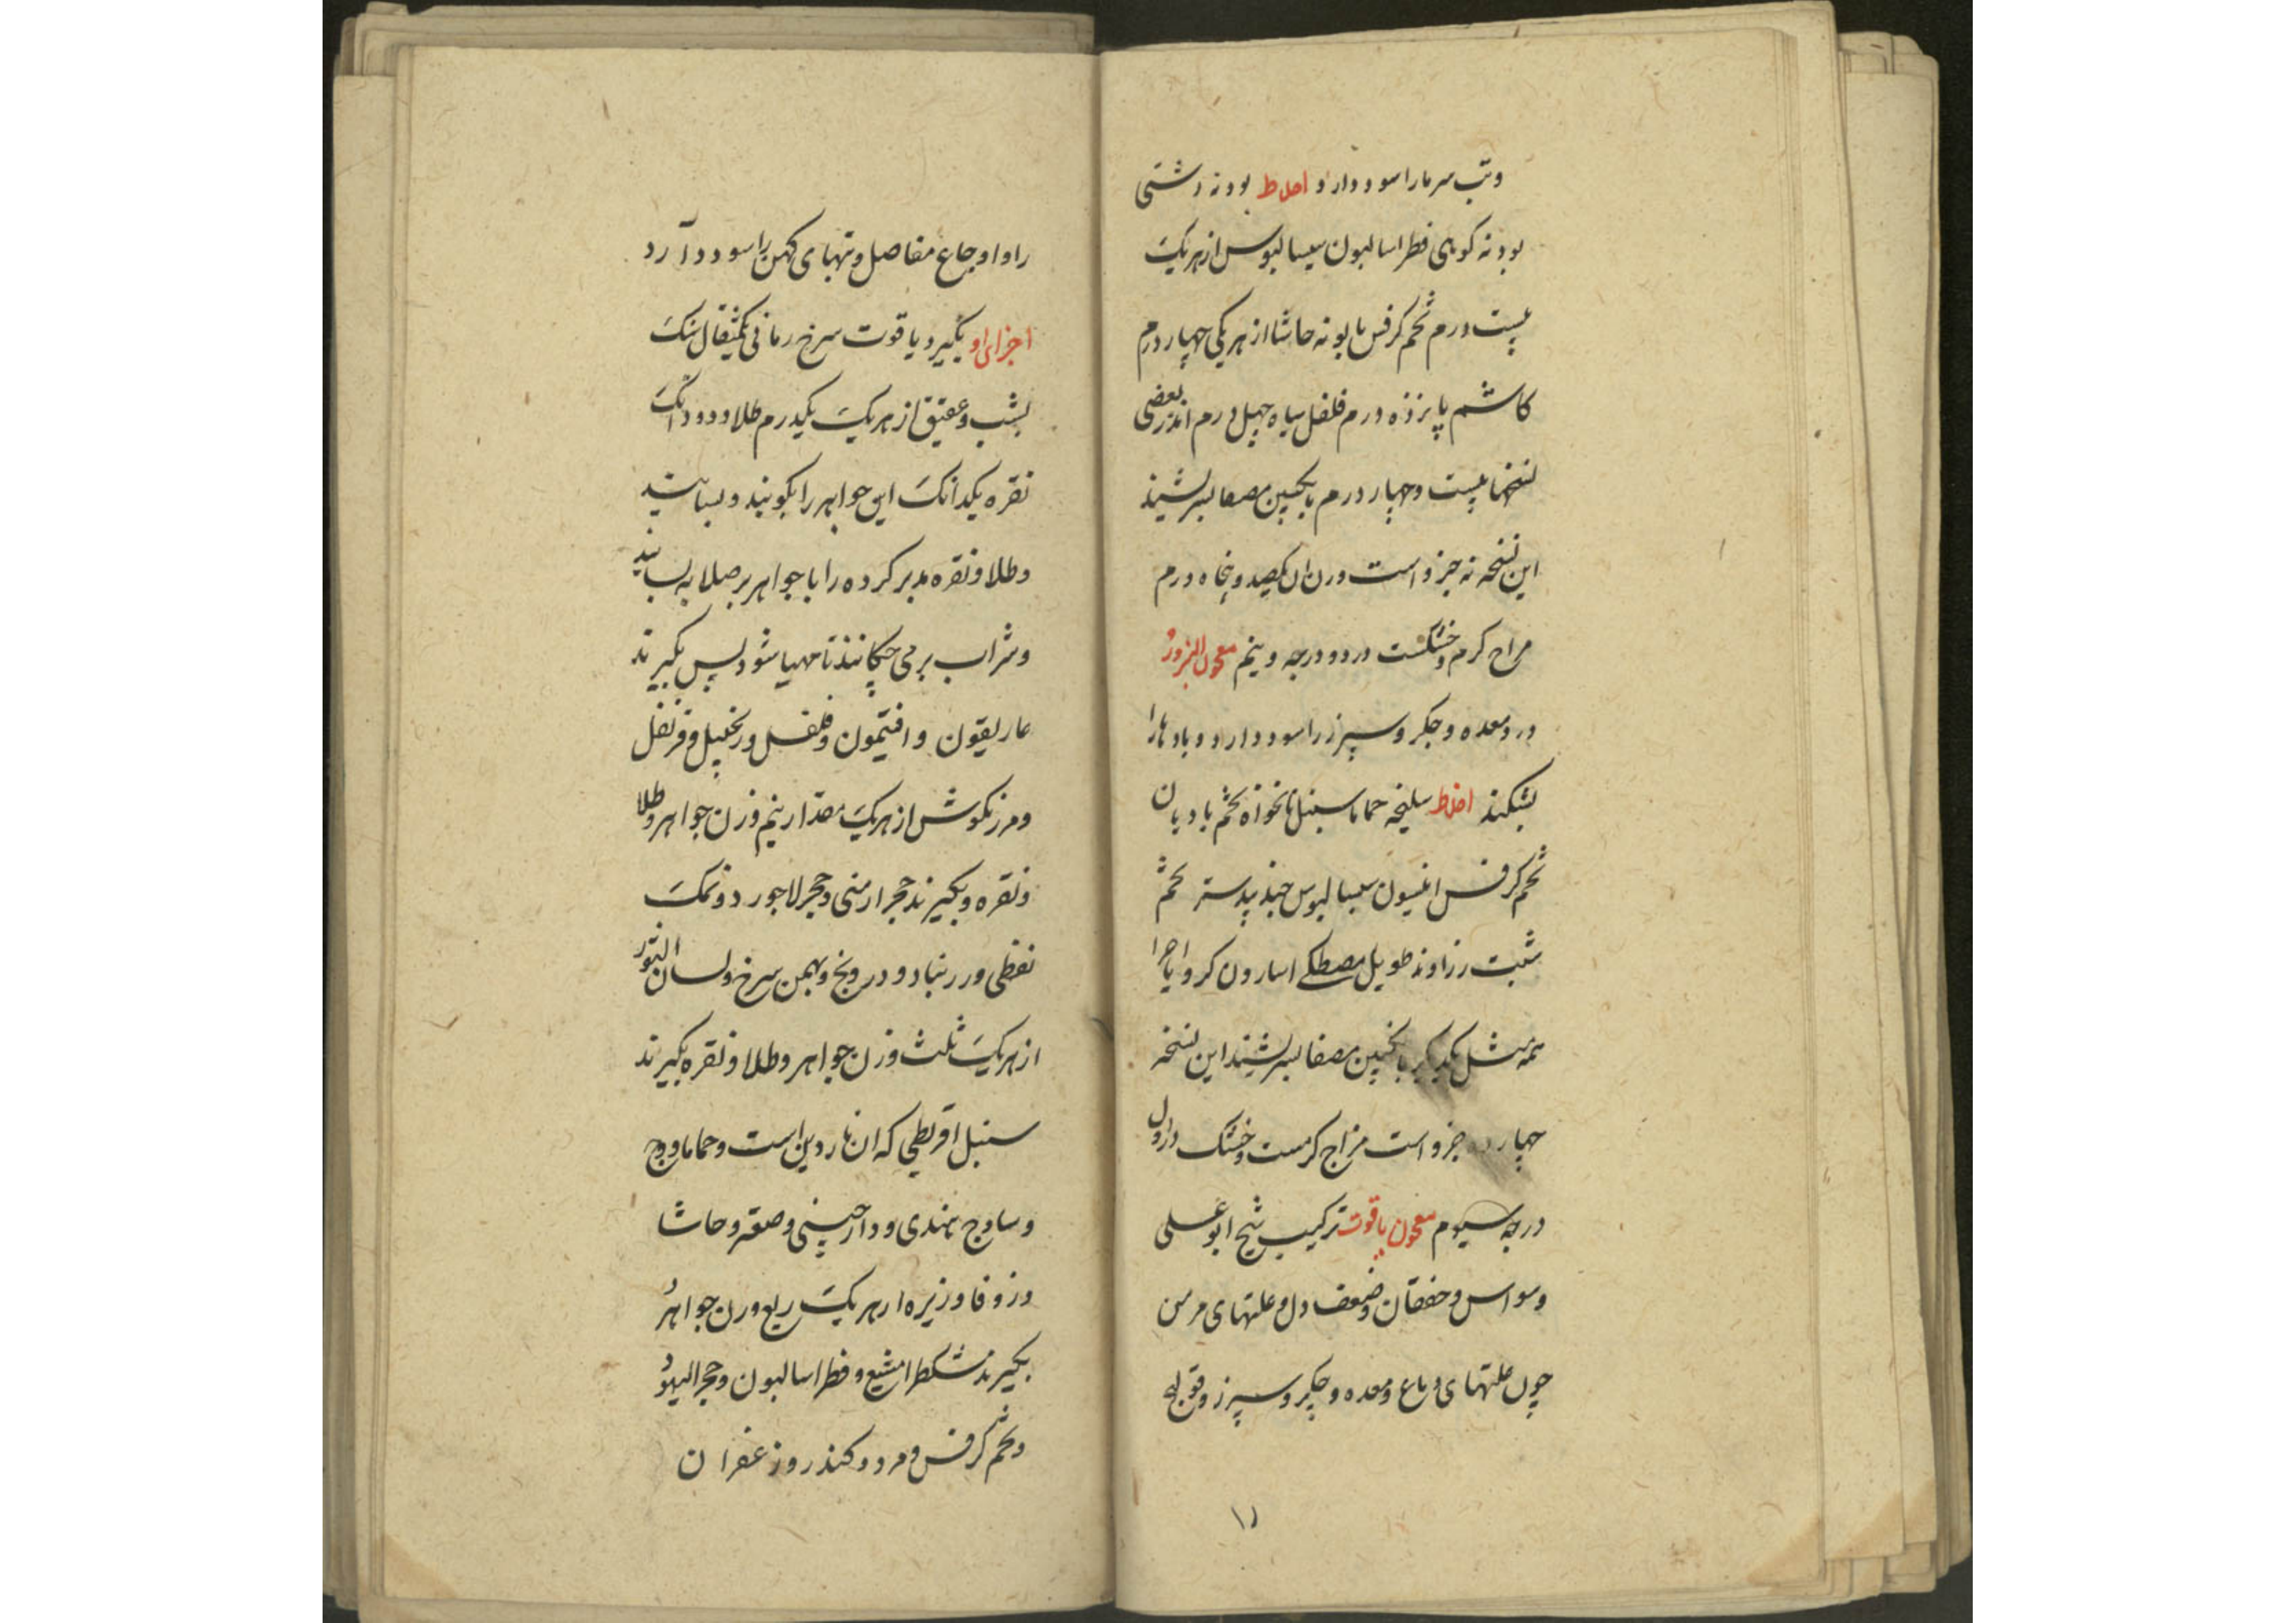 وتب سرما را سود دارد اخلاط بودنه دشتی
بودنه کوهی فطراسالیون سیسالیوس از هریک
بیست درم تخم کرفس بابونه حاشا از هر یکی چهار درم
کاشم پانزده درم فلفل سیاه چهل درم اندر بعضی
نسخها بیست وچهار درم بانکبین مصفا بسرشند
این نسخه نه جزو است وزن آن یکصد و پنجاه درم
مزاج کرم وخشکست در دو درجه و نیم معجون البزور
درد معده و جکر و سپرز را سود دارد و بادها را
بشکند اخلاط سلیخه حماما سنبل نانخواه تخم بادیان
تخم کرفس انیسون سیسالیوس جندبیدستر تخم
شبت زراوند طویل مصطکی اسارون کرویا اجزا
همه مثل یکدیکر بانکبین مصفا بسرشند این نسخه
چهارده جزو است مزاج کرمست وخشک در اول
درجه سیوم معجون یاقوت ترکیب شیخ ابوعلی
وسواس و خفقان و ضعف دل و علتهای مزمن
چون علتهای دماغ و معده و جکر و سپرز و قولنج
۱۱
را و اوجاع مفاصل و تبهای کهن را سود دارد
اجزای او بکیرد یاقوت سرخ رمانی یکمثقال سنک
یشب و عقیق از هریک یکدرم طلا دو دانک
نقره یکدانک این جواهر را بکوبند و بسایند
و طلا و نقره مدبر کرده را با جواهر بر صلایه بسایند
و شراب برمی چکانند تا مهیا شود پس بکیرند
غاریقون و افتیمون و فلفل و زنجبیل و قرنفل
و مرزنکوش از هریک مقدار نیم وزن جواهر و طلا
و نقره و بکیرند حجر ارمنی و حجر لاجورد و نمک
نفطی و زرنباد و درونج و بهمن سرخ و لسان الثور
از هریک ثلث وزن جواهر و طلا و نقره بکیرند
سنبل اقریطی که آن ناردین است و حماما و وج
و ساذج هندی و دارچینی و صعتر و حاشا
و زوفا و زیره از هر یک ربع وزن جواهر
بکیرند مشکطرامشیع و فطراسالیون و حجر الیهود
و تخم کرفس و مر و کندر و زعفران